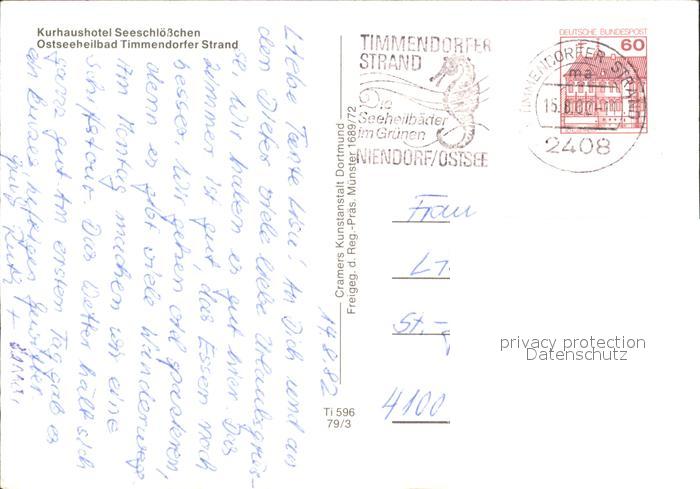 Kurhaushotel Seeschlößchen
Ostseeheilbad Timmendorfer Strand
14.8.82
Liebe Tante Lisa! An Dich und an
den Dieter viele liebe Urlaubsgrüs-
se. Wir haben es gut hier. Das
Zimmer ist gut, das Essen noch
besser. Wir gehen viel spazieren,
denn es gibt viele Wanderwege.
Am Montag machen wir eine
Schiffstour. Das Wetter hält sich
ganz gut. Am ersten Tag gab es
ein kurzes heftiges Gewitter.
Cramers Kunstanstalt Dortmund
Freigeg. d. Reg.-Präs. Münster 1689/72
Ti 596
79/3
TIMMENDORFER
STRAND
Die
Seeheilbäder
im Grünen
NIENDORF/OSTSEE
TIMMENDORFER STRAND
ma
2408
DEUTSCHE BUNDESPOST
60
Frau
St.-
4100
privacy protection
Datenschutz